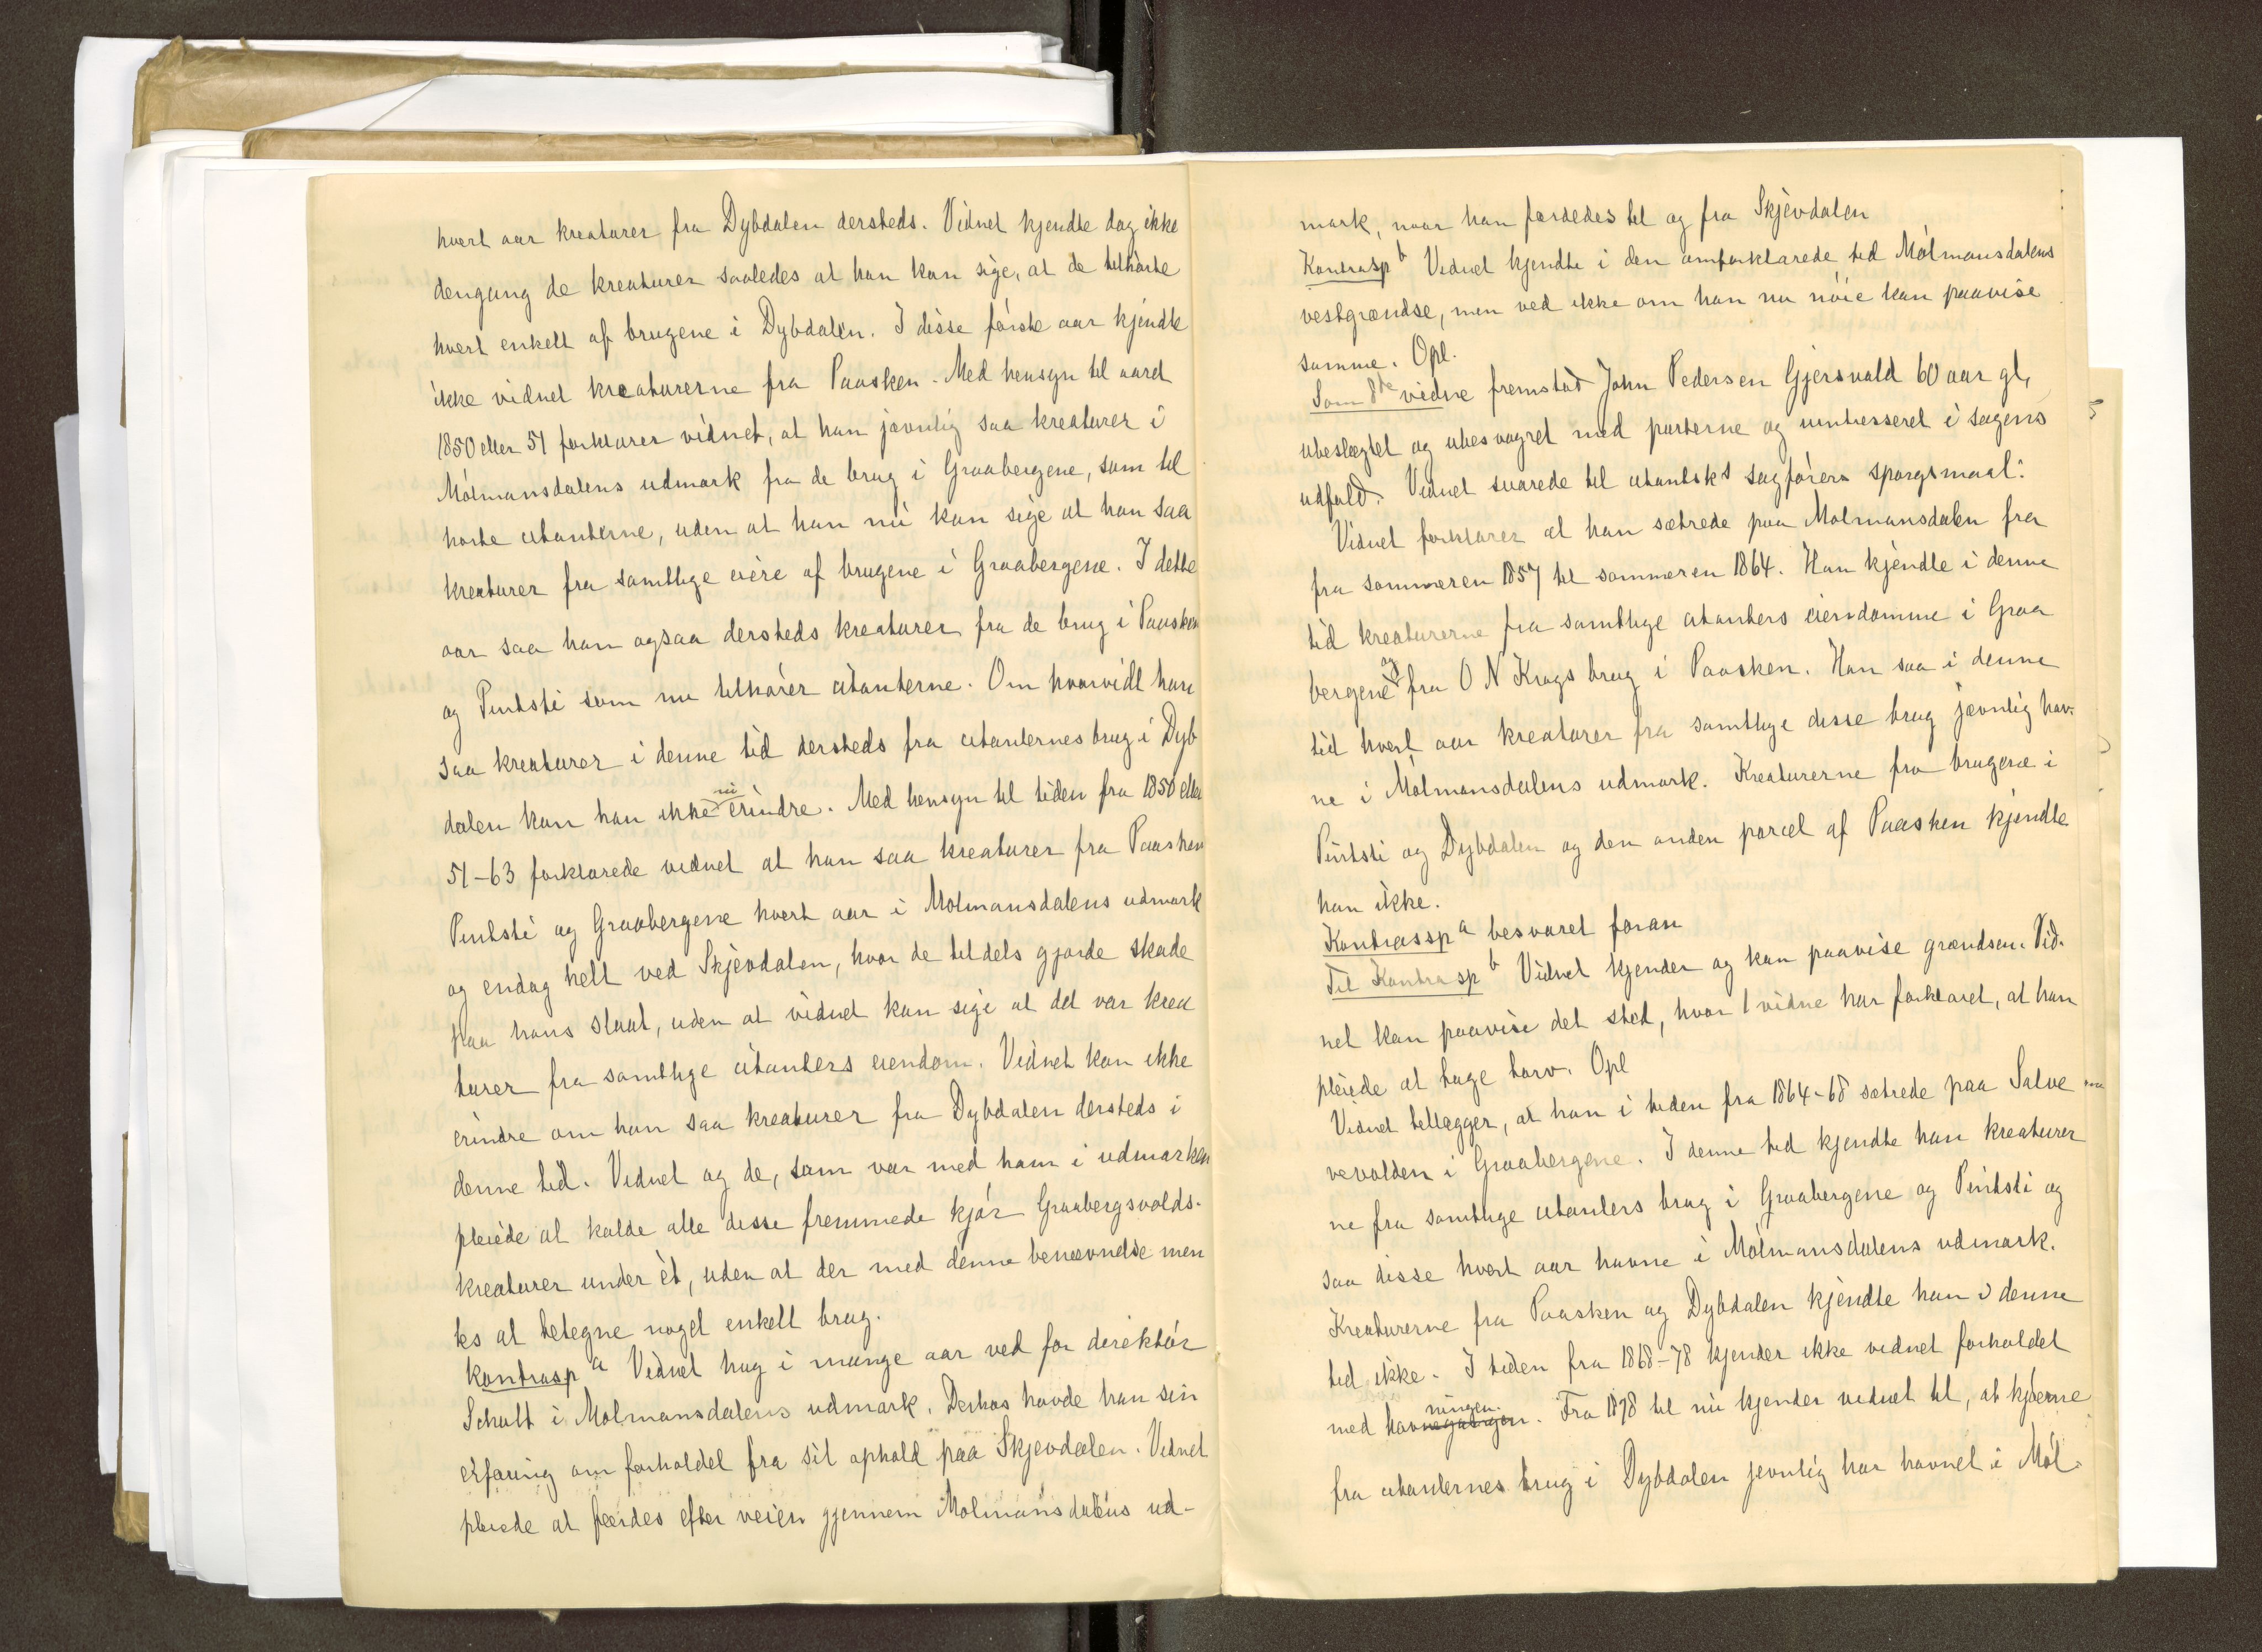 hvert aar kreaturer fra Dybdalen dersteds. Vidnet kjendte dog ikke
dengang de kreaturer saaledes at han kan sige, at de tilhørte
hvert enkelt af brugene i Dybdalen. I disse første aar kjendte
ikke vidnet kreaturerne fra Paasken. Med hensyn til aaret
1850 eller 51 forklarer vidnet, at han jævnlig saa kreaturer i
Mólmansdalens udmark fra de brug i Graabergene, som til
hørte citanterne, uden at han nu kan sige at han saa
kreaturer fra samtlige eiere af brugene i Graabergene. I dette
aar saa han ogsaa dersteds kreaturer fra de brug i Paasken
og Pintsti som nu tilhører citanterne. Om hvorvidt han
saa kreaturer i denne tid dersteds fra citanternes brug i Dyb
dalen kan han ikke nu erindre. Med hensyn til tiden fra 1850 eller
51-63 forklarede vidnet at han saa kreaturer fra Paasken
Pintsti og Graabergene hvert aar i Mólmansdalens udmark
og endog helt ved Skjevdalen, hvor de tildels gjorde skade
paa hans slaat, uden at vidnet kan sige at det var krea
turer fra samtlige citanters eiendom. Vidnet kan ikke
erindre om han saa kreaturer fra Dybdalen dersteds i
denne tid. Vidnet og de, som var med ham i udmarken
pleiede at kalde alle disse fremmede kjór Graabergsvolds-
kreaturer under èt, uden at der med denne benævnelse men
tes at betegne noget enkelt brug.
Kontrasp a Vidnet hug i mange aar ved for direktór
Schult i Molmansdalens udmark. Derhos havde han sin
erfaring om forholdet fra sit ophold paa Skjevdalen. Vidnet
pleiede at færdes efter veien gjennem Molmansdalens ud-
mark, naar han færdedes til og fra Skjevdalen
Kontrasp b Vidnet kjendte i den omforklarede tid Mólmansdalens
vestgrændse, men ved ikke om han nu nóie kan paavise
samme. Opl.
Som 8de vidne fremstod John Pedersen Gjersvold 60 aar gl,
ubeslægtet og ubesvogret med parterne og uintresseret i sagens
udfald. Vidnet svarede til citantsk's sagfórers spørgsmaal:
Vidnet forklarer at han sætrede paa Molmansdalen fra
fra sommeren 1857 til sommeren 1864. Han kjendte i denne
tid kreaturerne fra samtlige citanters eiendomme i Graa
bergene og fra O N Krogs brug i Paasken. Han saa i denne
tid hvert aar kreaturer fra samtlige disse brug jævnlig hav-
ne i Mólmansdalens udmark. Kreaturerne fra brugene i
Pintsti og Dybdalen og den anden parcel af Paasken kjendte
han ikke.
Kontrassp a besvaret foran
Til Kontrasp b Vidnet kjender og kan paavise grændsen. Vid-
net kan paavise det sted, hvor 1 vidne har forklaret, at han
pleiede at tage torv. Opl
Vidnet tillægger, at han i tiden fra 1864-68 sætrede paa Salve
vevolden i Graabergene. I denne tid kjendte han kreaturer
ne fra samtlige citanters brug i Graabergene og Pintsti og
saa disse hvert aar havne i Mólmansdalens udmark.
Kreaturerne fra Paasken og Dybdalen kjendte han i denne
tid ikke. I tiden fra 1868-78 kjender ikke vidnet forholdet
med havnegangen ningen. Fra 1878 til nu kjender vidnet til, at kjórne
fra citanternes brug i Dybdalen jevnlig har havnet i Mól-